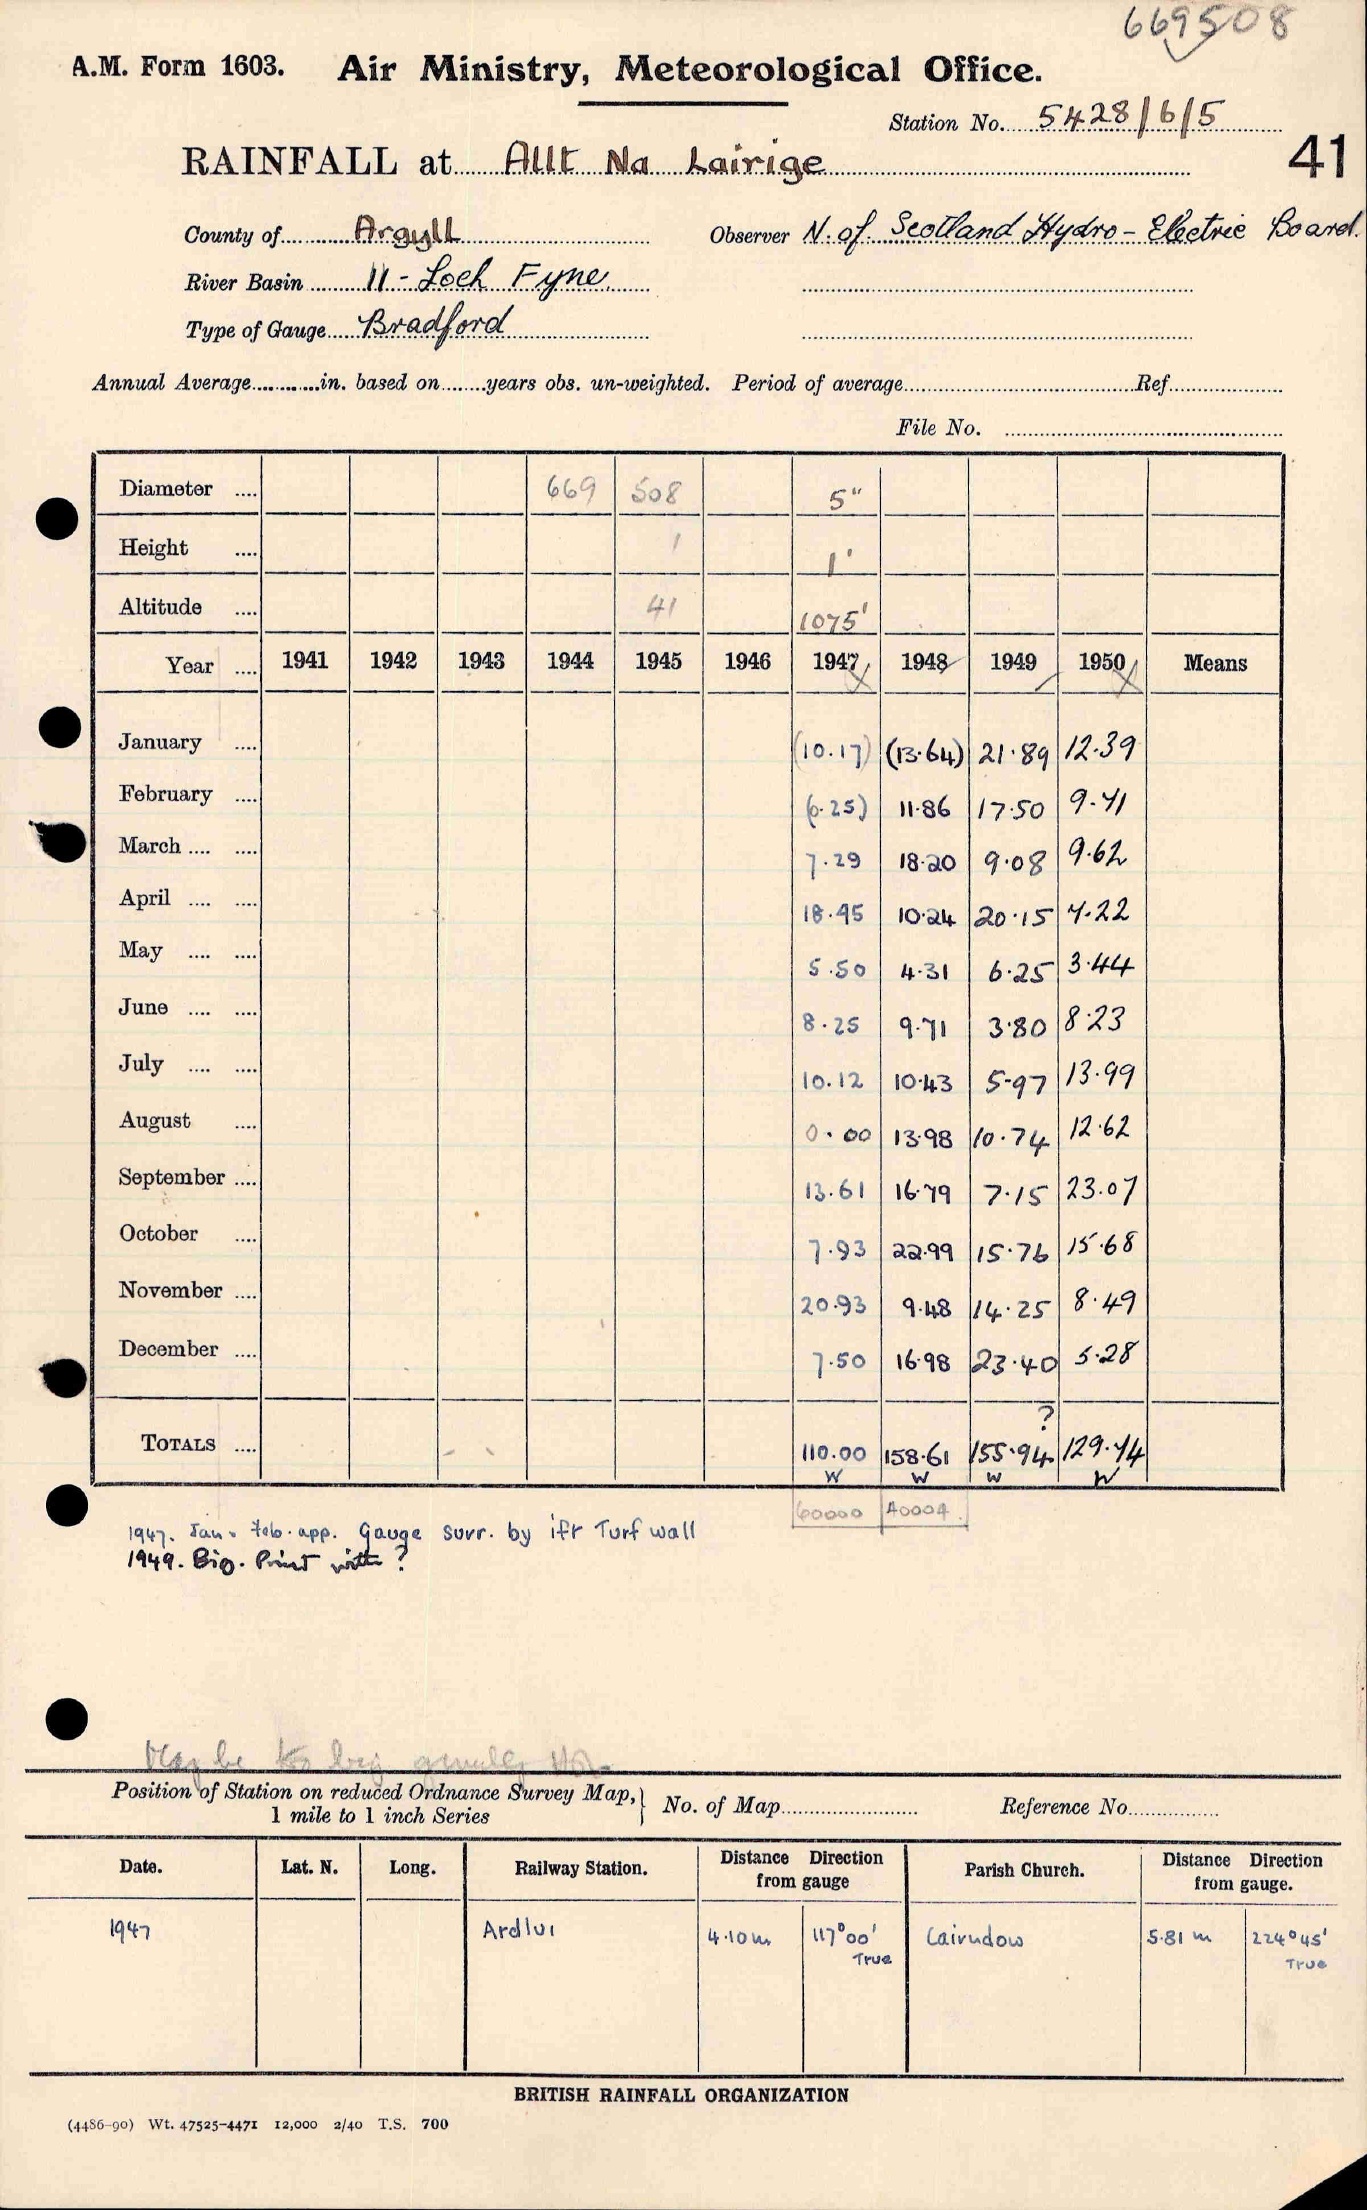 669508
A.M. Form 1603. Air Ministry, Meteorological Office.
Station No. 5428/6/5
41
RAINFALL at Allt Na Lairige
County of Argyll Observer N. of Scotland Hydro-Electric Board.
River Basin 11 - Loch Fyne.
Type of Gauge Bradford
Annual Average in. based on years obs. un-weighted. Period of average Ref
File No.
Diameter .... 669 508 5"
Height .... 1 1'
Altitude .... 41 1075'
Year .... 1941 1942 1943 1944 1945 1946 1947 1948 1949 1950 Means
January .... (10.17) (13.64) 21.89 12.39
February .... (6.25) 11.86 17.50 9.71
March .... .... 7.29 18.20 9.08 9.62
April .... .... 18.45 10.24 20.15 7.22
May .... .... 5.50 4.31 6.25 3.44
June .... .... 8.25 9.71 3.80 8.23
July .... .... 10.12 10.43 5.97 13.99
August .... 0.00 13.98 10.74 12.62
September .... 13.61 16.79 7.15 23.07
October .... 7.93 22.99 15.76 15.68
November .... 20.93 9.48 14.25 8.49
December .... 7.50 16.98 23.40 5.28
?
TOTALS .... 110.00 158.61 155.94 129.74
W W W W
60000 40004
1947. Jan. Feb. app. Gauge surr. by 1ft Turf wall
1949. Big. Print with ?
May be too big
Position of Station on reduced Ordnance Survey Map, 1 mile to 1 inch Series } No. of Map Reference No.
Date. Lat. N. Long. Railway Station. Distance Direction from gauge Parish Church. Distance Direction from gauge.
1947 Ardlui 4.10 m 117°00' True Cairndow 5.81 m 224°45' True
BRITISH RAINFALL ORGANIZATION
(4486-90) Wt. 47525-4471 12,000 2/40 T.S. 700